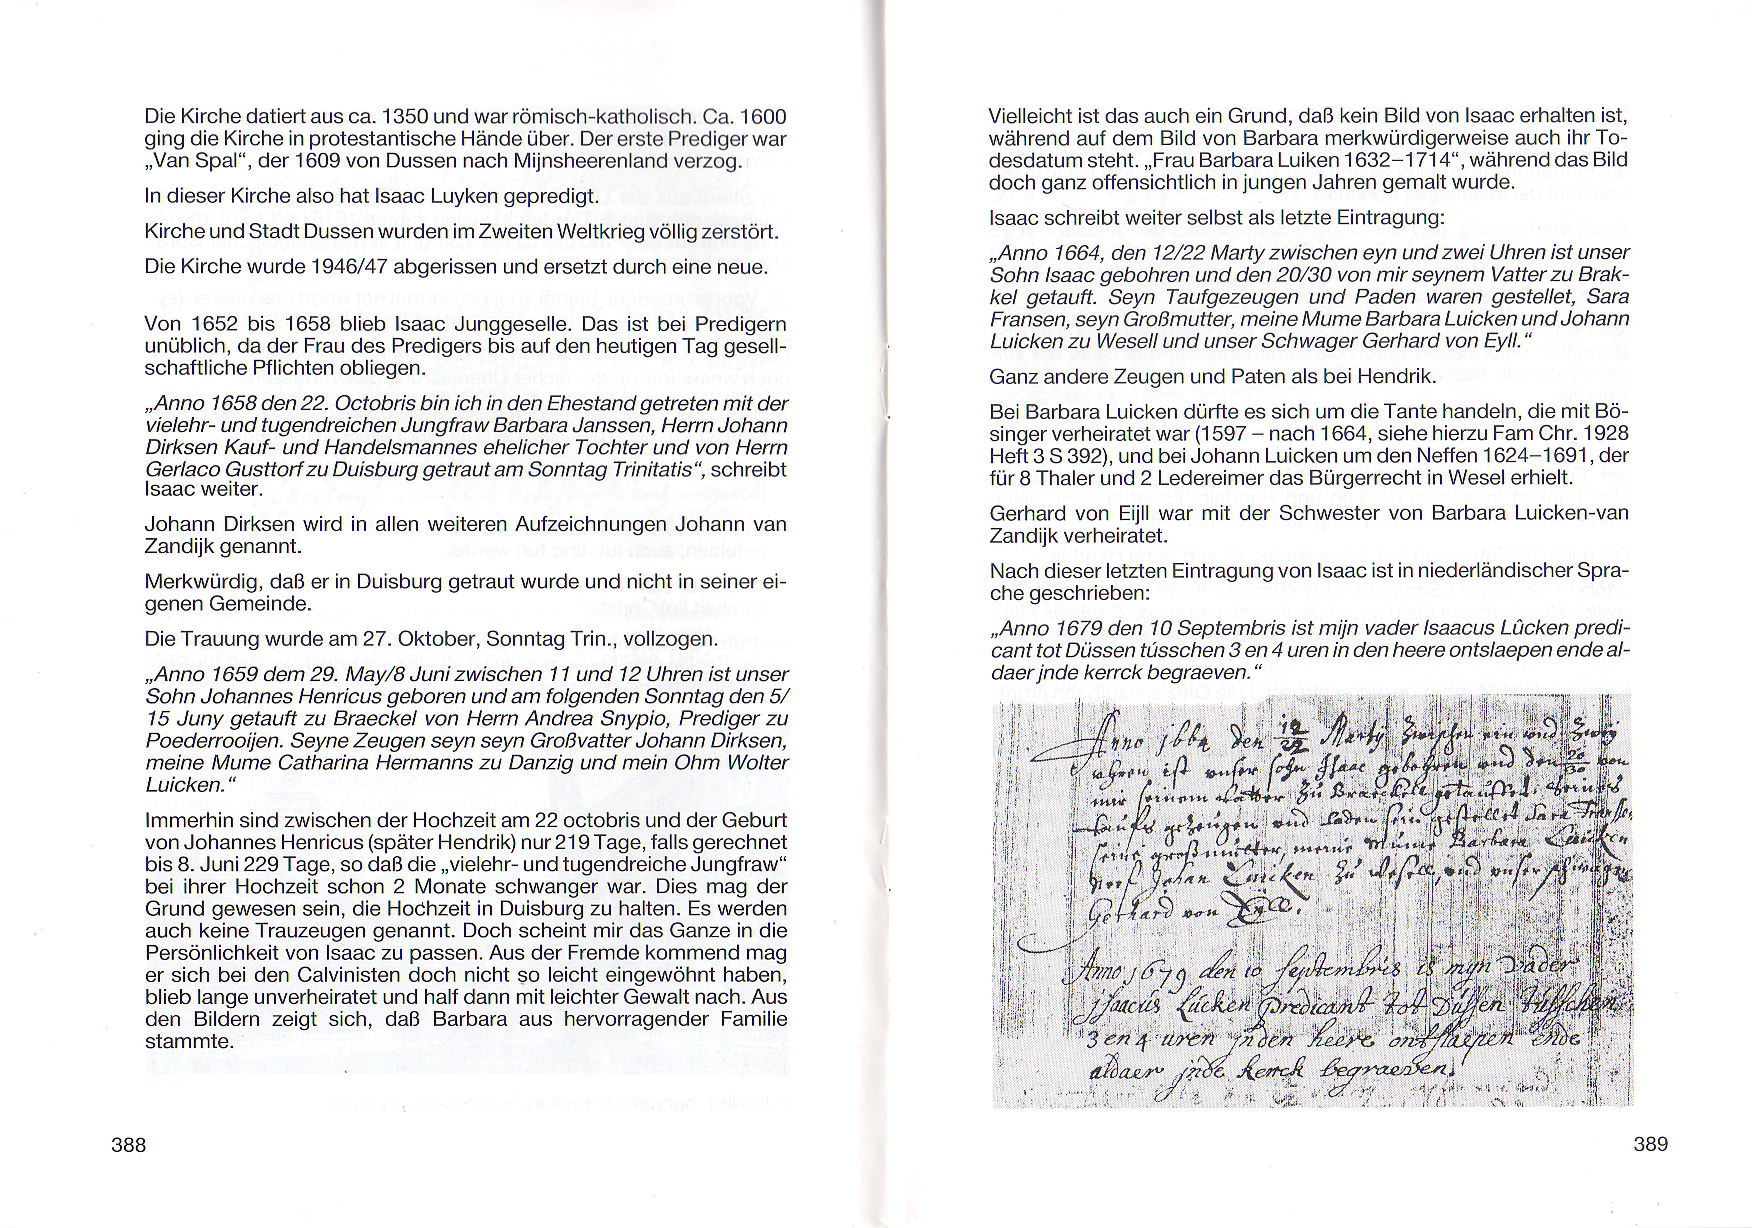 Die Kirche datiert aus ca. 1350 und war römisch-katholisch. Ca. 1600
ging die Kirche in protestantische Hände über. Der erste Prediger war
„Van Spal“, der 1609 von Dussen nach Mijnsheerenland verzog.
In dieser Kirche also hat Isaac Luyken gepredigt.
Kirche und Stadt Dussen wurden im Zweiten Weltkrieg völlig zerstört.
Die Kirche wurde 1946/47 abgerissen und ersetzt durch eine neue.
Von 1652 bis 1658 blieb Isaac Junggeselle. Das ist bei Predigern
unüblich, da der Frau des Predigers bis auf den heutigen Tag gesell-
schaftliche Pflichten obliegen.
„Anno 1658 den 22. Octobris bin ich in den Ehestand getreten mit der
vielehr- und tugendreichen Jungfraw Barbara Janssen, Herrn Johann
Dirksen Kauf- und Handelsmannes ehelicher Tochter und von Herrn
Gerlaco Gusttorf zu Duisburg getraut am Sonntag Trinitatis“, schreibt
Isaac weiter.
Johann Dirksen wird in allen weiteren Aufzeichnungen Johann van
Zandijk genannt.
Merkwürdig, daß er in Duisburg getraut wurde und nicht in seiner ei-
genen Gemeinde.
Die Trauung wurde am 27. Oktober, Sonntag Trin., vollzogen.
„Anno 1659 dem 29. May/8 Juni zwischen 11 und 12 Uhren ist unser
Sohn Johannes Henricus geboren und am folgenden Sonntag den 5/
15 Juny getauft zu Braeckel von Herrn Andrea Snypio, Prediger zu
Poederrooijen. Seyne Zeugen seyn seyn Großvatter Johann Dirksen,
meine Mume Catharina Hermanns zu Danzig und mein Ohm Wolter
Luicken.“
Immerhin sind zwischen der Hochzeit am 22 octobris und der Geburt
von Johannes Henricus (später Hendrik) nur 219 Tage, falls gerechnet
bis 8. Juni 229 Tage, so daß die „vielehr- und tugendreiche Jungfraw“
bei ihrer Hochzeit schon 2 Monate schwanger war. Dies mag der
Grund gewesen sein, die Hochzeit in Duisburg zu halten. Es werden
auch keine Trauzeugen genannt. Doch scheint mir das Ganze in die
Persönlichkeit von Isaac zu passen. Aus der Fremde kommend mag
er sich bei den Calvinisten doch nicht so leicht eingewöhnt haben,
blieb lange unverheiratet und half dann mit leichter Gewalt nach. Aus
den Bildern zeigt sich, daß Barbara aus hervorragender Familie
stammte.
388
Vielleicht ist das auch ein Grund, daß kein Bild von Isaac erhalten ist,
während auf dem Bild von Barbara merkwürdigerweise auch ihr To-
desdatum steht. „Frau Barbara Luiken 1632–1714“, während das Bild
doch ganz offensichtlich in jungen Jahren gemalt wurde.
Isaac schreibt weiter selbst als letzte Eintragung:
„Anno 1664, den 12/22 Marty zwischen eyn und zwei Uhren ist unser
Sohn Isaac gebohren und den 20/30 von mir seynem Vatter zu Brak-
kel getauft. Seyn Taufgezeugen und Paden waren gestellet, Sara
Fransen, seyn Großmutter, meine Mume Barbara Luicken und Johann
Luicken zu Wesell und unser Schwager Gerhard von Eyll.“
Ganz andere Zeugen und Paten als bei Hendrik.
Bei Barbara Luicken dürfte es sich um die Tante handeln, die mit Bö-
singer verheiratet war (1597 – nach 1664, siehe hierzu Fam Chr. 1928
Heft 3 S 392), und bei Johann Luicken um den Neffen 1624–1691, der
für 8 Thaler und 2 Ledereimer das Bürgerrecht in Wesel erhielt.
Gerhard von Eijll war mit der Schwester von Barbara Luicken-van
Zandijk verheiratet.
Nach dieser letzten Eintragung von Isaac ist in niederländischer Spra-
che geschrieben:
„Anno 1679 den 10 Septembris ist mijn vader Isaacus Lûcken predi-
cant tot Düssen tússchen 3 en 4 uren in den heere ontslaepen ende al-
daer jnde kerrck begraeven.“
Anno 1664 den 12/22 Marty zwischen ein und zwey
uhren ist unser sohn Isaac gebohren und den 20/30 von
mir seinem vatter zu Braeckell getauffet. Seine
taufs gezeugen und paden sein gestellet Sara Franssen
seine großmutter, meine Mume Barbara Luicken
Johan Luicken zu Wesell, und unser schwager
Gerhard von Eyll.
Anno 1679 den 10 septembris is mijn vader
jsaacus Lücken predicant tot Düssen tusschen
3 en 4 uren jn den heere ontslaepen ende
aldaer jnde kerrck begraeven.
389